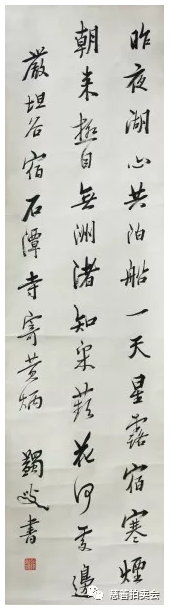 昨夜湖心共泊船一天星露宿寒煙
朝来極目無洲渚知采蘋花何處邊
嚴坦谷宿石潭寺寄黄炳 蠲叟書
慈善拍卖会